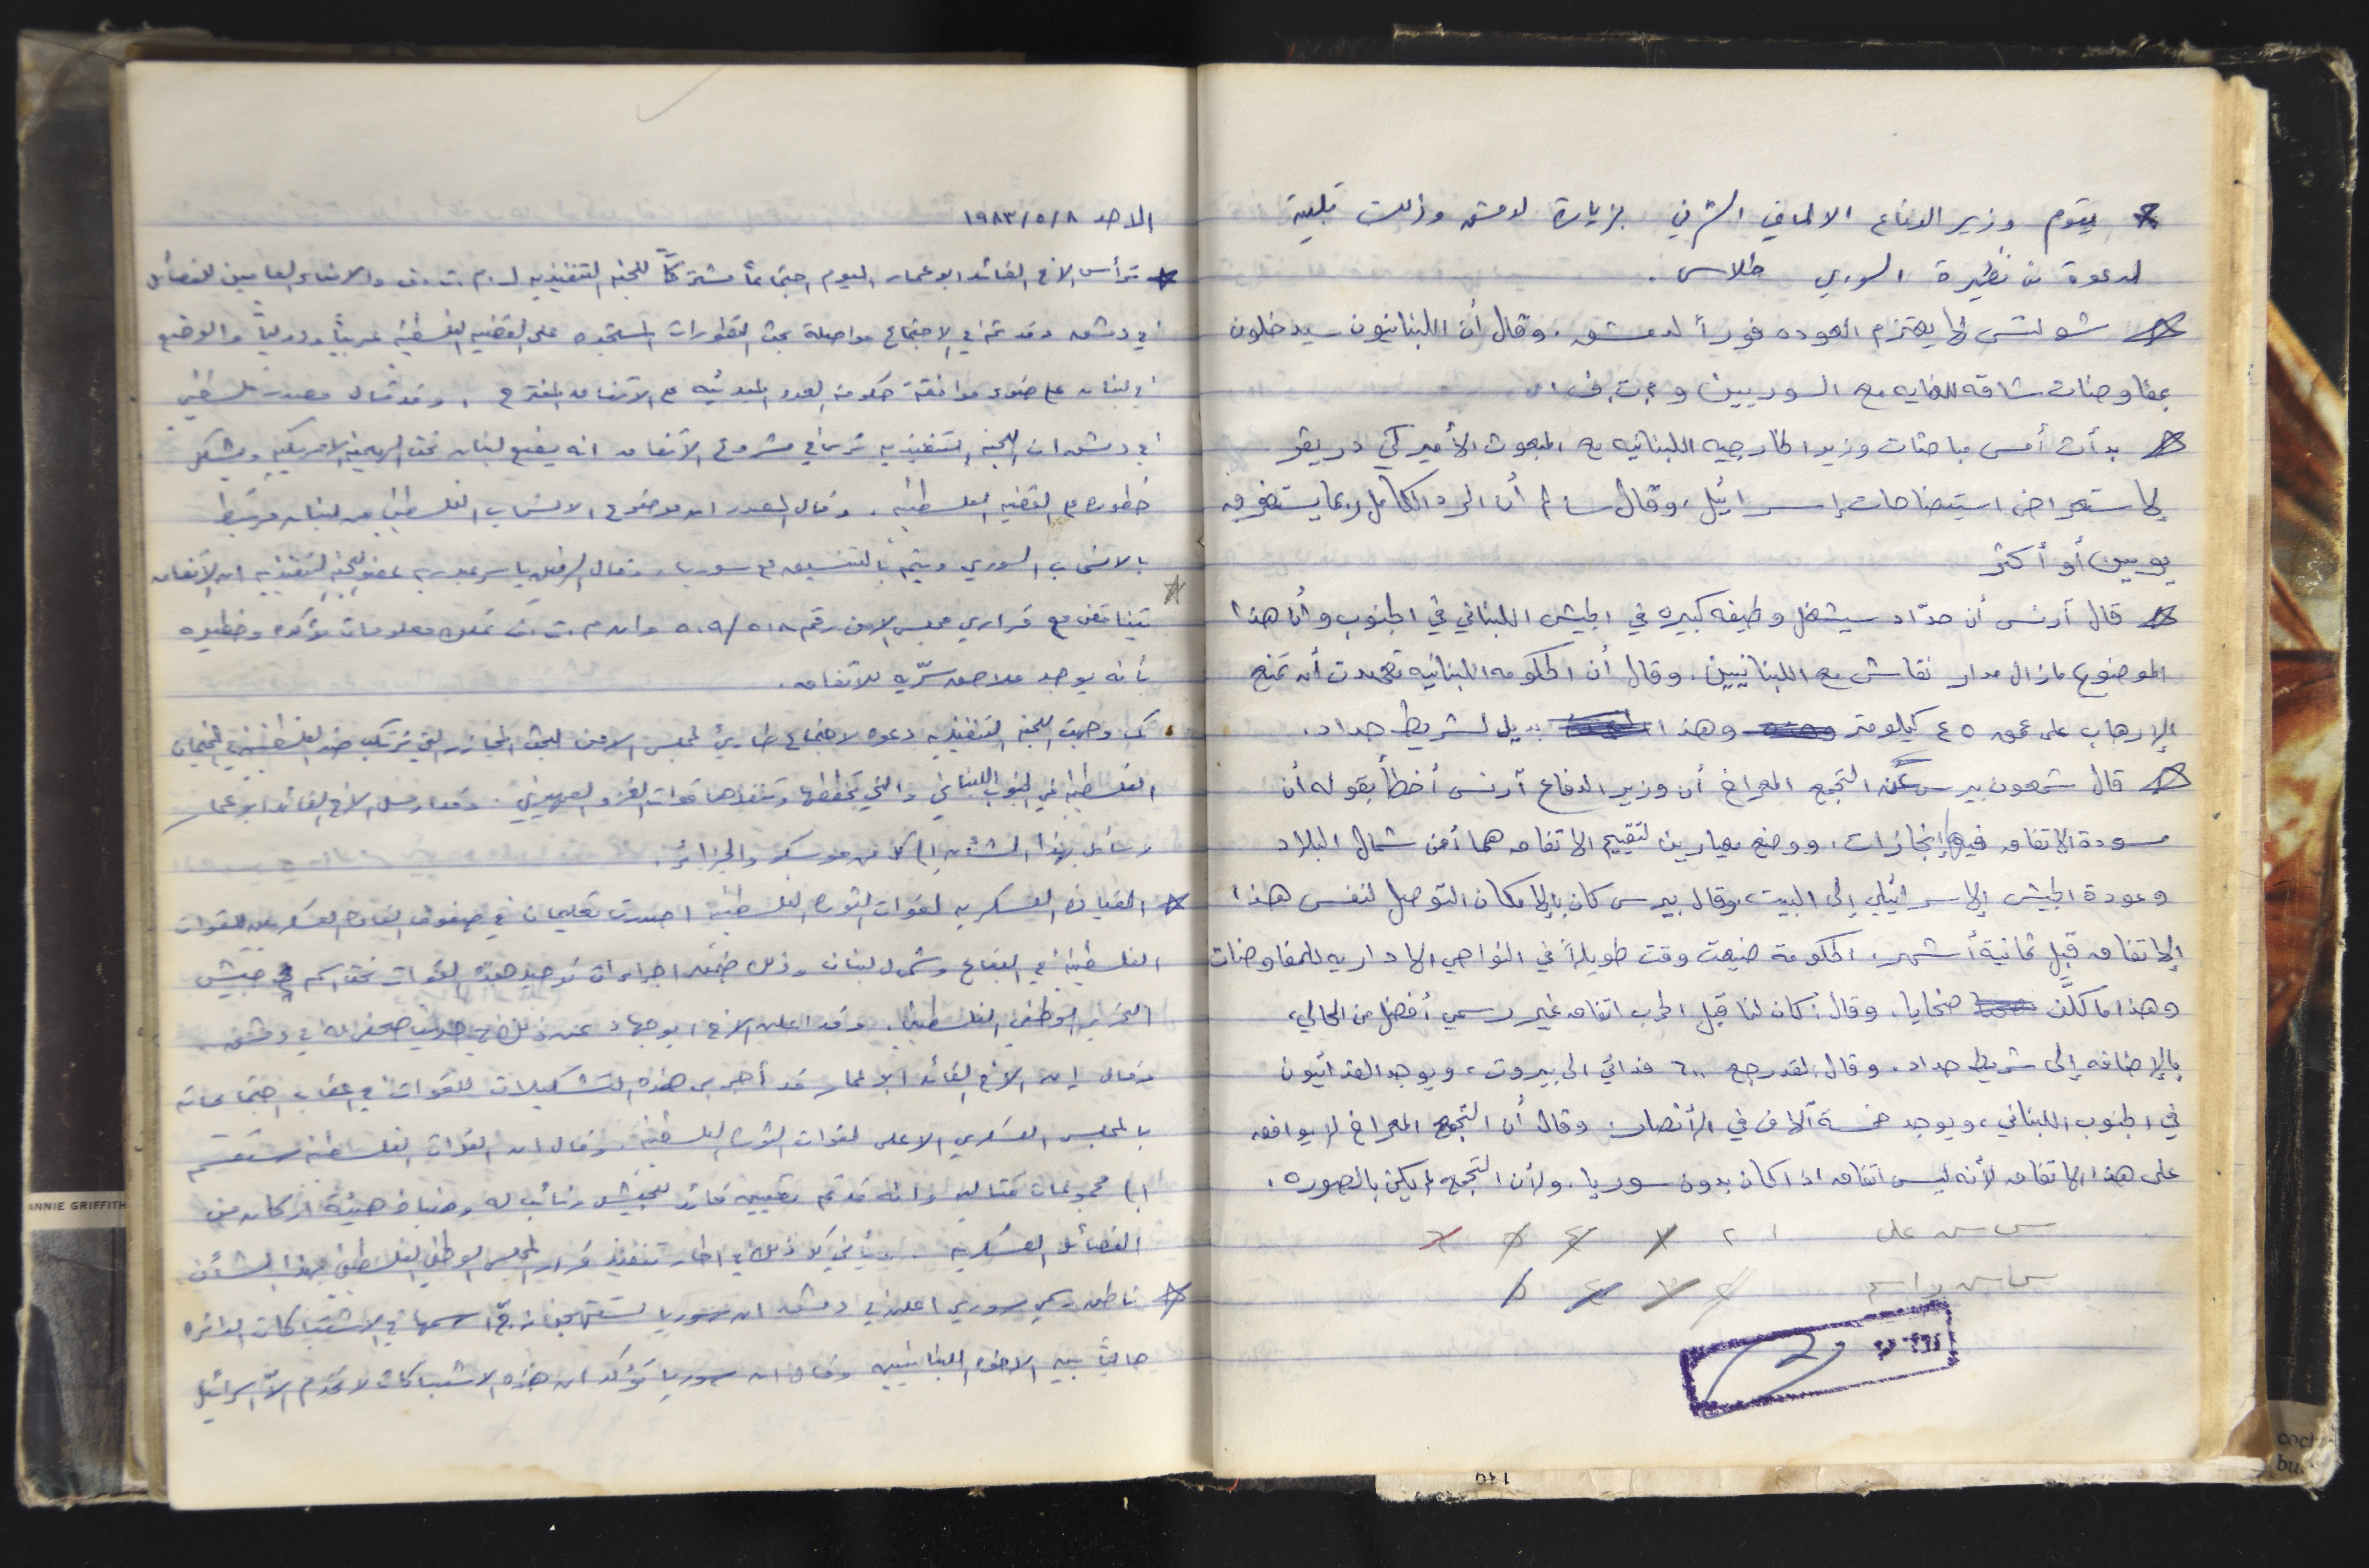 يقوم وزير الدفاع الالماني الشرقي بزيارة لدمشق وذلك تلبية
لدعوة من نظيرة السوري طلاس .
شولتس لا يعتزم العوده فوراً لدمشق . وقال أن اللبنانيون سيدخلون
بمفاوضات شاقه للغايه مع السوريين و م.ت.ف
بدأت أمس مباحثات وزير الخارجيه اللبنانيه مع المبعوث الأميركي دريبر
لاستعراض استيضاحات إسرائيل ، وقال سالم أن الرد الكامل ربما يستغرق
يومين أو أكثر
قال آرنس أن حدّاد سيشغل وظيفه كبيره في الجيش اللبناني في الجنوب وأن هذا
الموضوع مازال مدار نقاش مع اللبنانيين . وقال أن الحكومه اللبنانيه تعهدت أن تمنع
الإرهاب على عمق ٤٥ كيلومتر وهذا بديل لشريط حداد .
قال شمعون بيرس عن التجمع المعراخ أن وزير الدفاع آرنس أخطأ بقوله أن
مسودة الاتفاق فيها إنجازات ، ووضع معيارين لتقييم الاتفاق هما أمن شمال البلاد
وعودة الجيش الإسرائيلي إلى البيت ، وقال بيرس كان بالإمكان التوصل لنفس هذا
الإتفاق قبل ثمانية أشهر ، الحكومة ضيعت وقت طويلاً في النواحي الاداريه للمفاوضات
وهذا ما كلّف ضحايا . وقال : كان لنا قبل الحرب اتفاق غير رسمي أفضل من الحالي ،
بالإضافه إلى شريط حداد . وقال : لقد رجع ٦٠٠ فدائي الى بيروت ، ويوجد الفدائيون
في الجنوب اللبناني ، ويوجد خمسة آلاف في الأنصار . وقال أن التجمع المعراخ لا يوافق
على هذا الاتفاق لأنه ليس اتفاق اذا كان بدون سوريا . ولأن التجمع لم يكن بالصوره .
س س على ١ ٢ ٣ ٤ ٥ ٦
٢ ٣ ٤ ٥
الاحد ١٩٨٣/٥/٨
ترأس الاخ القائد ابو عمار اليوم اجتماعاً مشتركاً للجنه التنفيذيه ل م.ت.ف والامناء العامين للفصائل
في دمشق وقد تم في الاجتماع مواصلة بحث التطورات المستجده على القضيه الفلسطينيه عربياً ودولياً والوضع
في لبنان على ضوء موافقة حكومة العدو المبدئيه على الاتفاق المقترح . وقد قال مصدر فلسطيني
في دمشق ان اللجنه التنفيذيه ترى في مشروع الاتفاق انه يضع لبنان تحت الهيمنه الامريكيه ويشكل
خطوره على القضيه الفلسطينيه . وقال المصدر ان موضوع الانسحاب الفلسطيني من لبنان مرتبط
بالانسحاب السوري ويتم بالتنسيق مع سوريا . وقال الرفيق ياسر عبدربه عضو اللجنه التنفيذيه ان الاتفاق
يتناقض مع قراري مجلس الامن رقم ٥٠٨/ ٥٠٩ وان م.ت.ف تملك معلومات مؤكده وخطيره
بأنه يوجد ملاحق سرّيه للاتفاق .
كما وجهت اللجنه التنفيذيه دعوه لاجتماع طارئ لمجلس الامن لبحث المجازر التي ترتكب ضد الفلسطينيين في المخيمات
الفلسطينيه في الجنوب اللبناني والتي تخططها وتنفذها قوات الغزو الصهيوني . وقد ارسل الاخ القائد ابو عمار
رسائل بهذا الشأن الى كل من موسكو والجزائر .
القياده العسكريه لقوات الثوره الفلسطينيه اصدرت تعليمات في صفوف القاده العسكريين للقوات
الفلسطينيه في البقاع وشمال لبنان وذلك ضمن اجراءات توحيد هذه القوات تحت اسم جيش
التحرير الوطني الفلسطيني . وقد اعلن الاخ ابو جهاد عن ذلك في حديث صحفي له في دمشق .
وقال إن الاخ القائد ابو عمار قد أجرى هذه التشكيلات للقوات في اعقاب اجتماعاته
بالمجلس العسكري الاعلى لقوات الثوره الفلسطينيه . وقال ان القوات الفلسطينيه ستقسم
الى مجموعات قتاليه وانه قد تم تعيين قائد للجيش ونائب له وضباط هيئة اركان من
الفصائل العسكريه . ويأتي كل ذلك في اطار تنفيذ قرار المجلس الوطني الفلسطيني بهذا الشأن
ناطق رسمي سوري اعلن في دمشق ان سوريا تستهجن زج اسمها في الاشتباكات الدائره
حالياً بين الاخوه اللبنانيين وقال ان سوريا تؤكد ان هذه الاشتباكات لا تخدم الا اسرائيل
ANNIE GRIFFITH